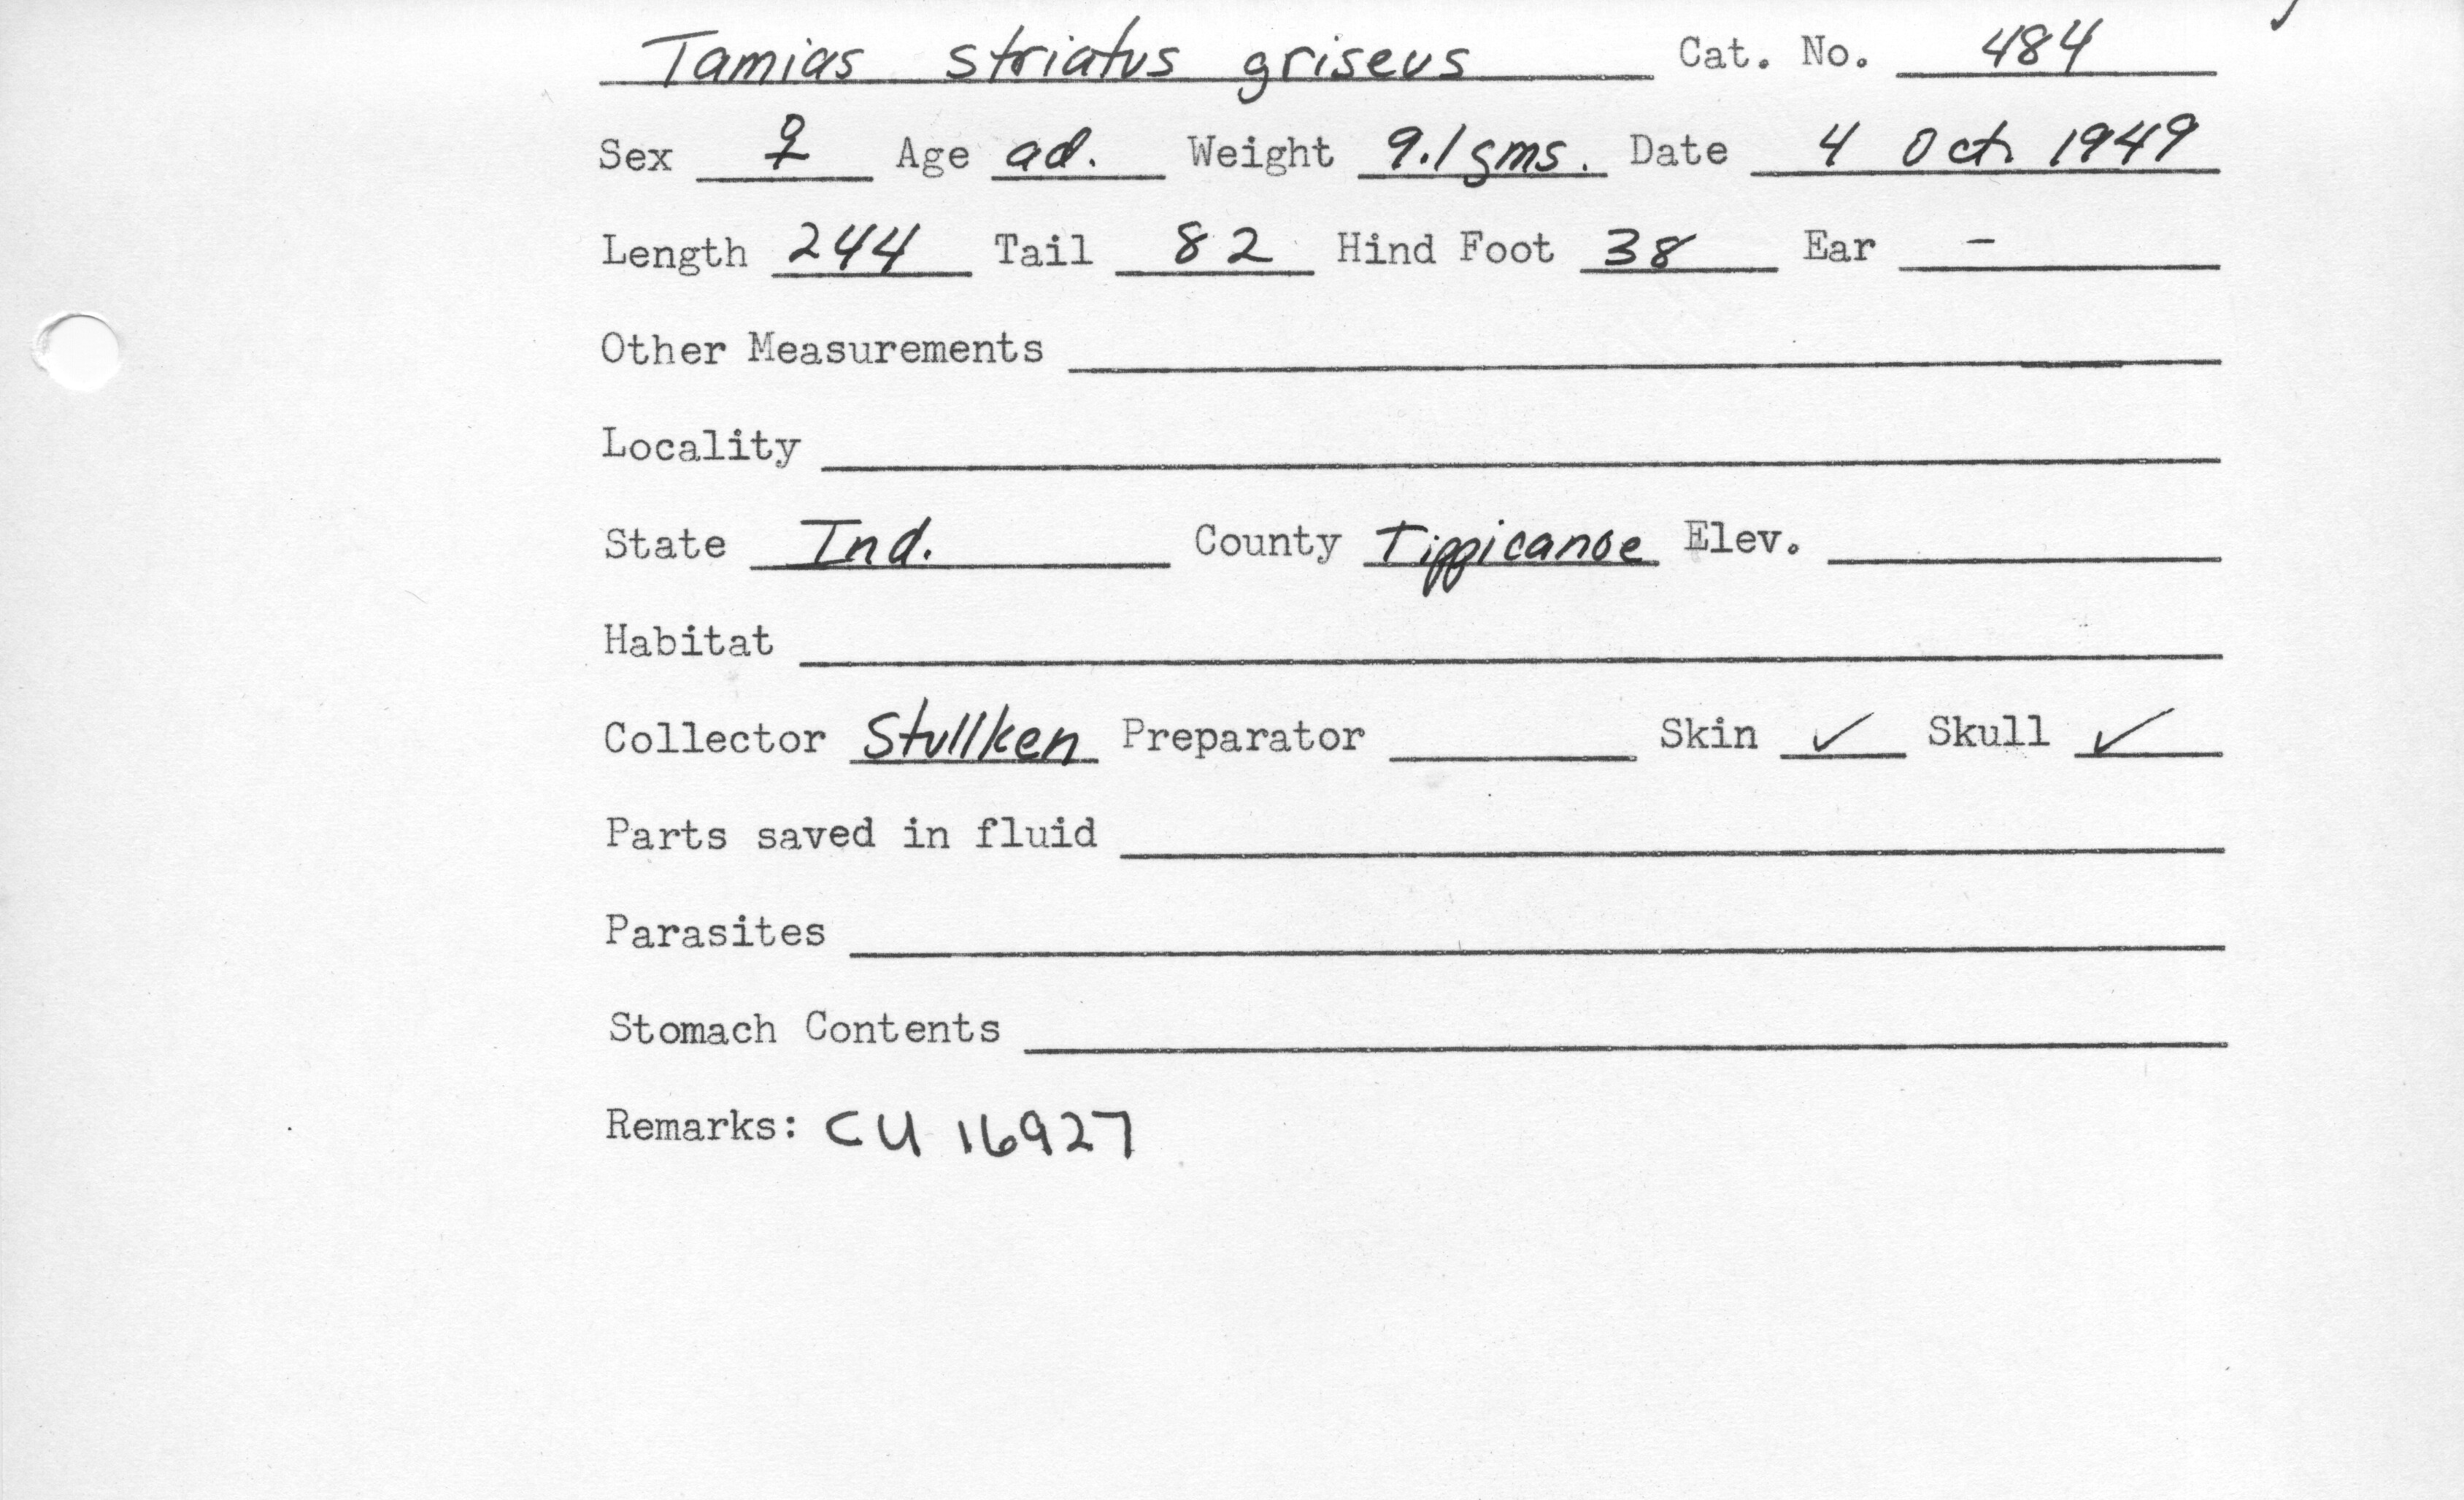 Tamias striatus griseus Cat. No. 484
Sex ♀ Age ad. Weight 9.1gms. Date 4 Oct. 1949
Length 244 Tail 82 Hind Foot 38 Ear -
Other Measurements
Locality
State Ind. County Tippicanoe Elev.
Habitat
Collector Stullken Preparator Skin ✓ Skull ✓
Parts saved in fluid
Parasites
Stomach Contents
Remarks: CU 16927